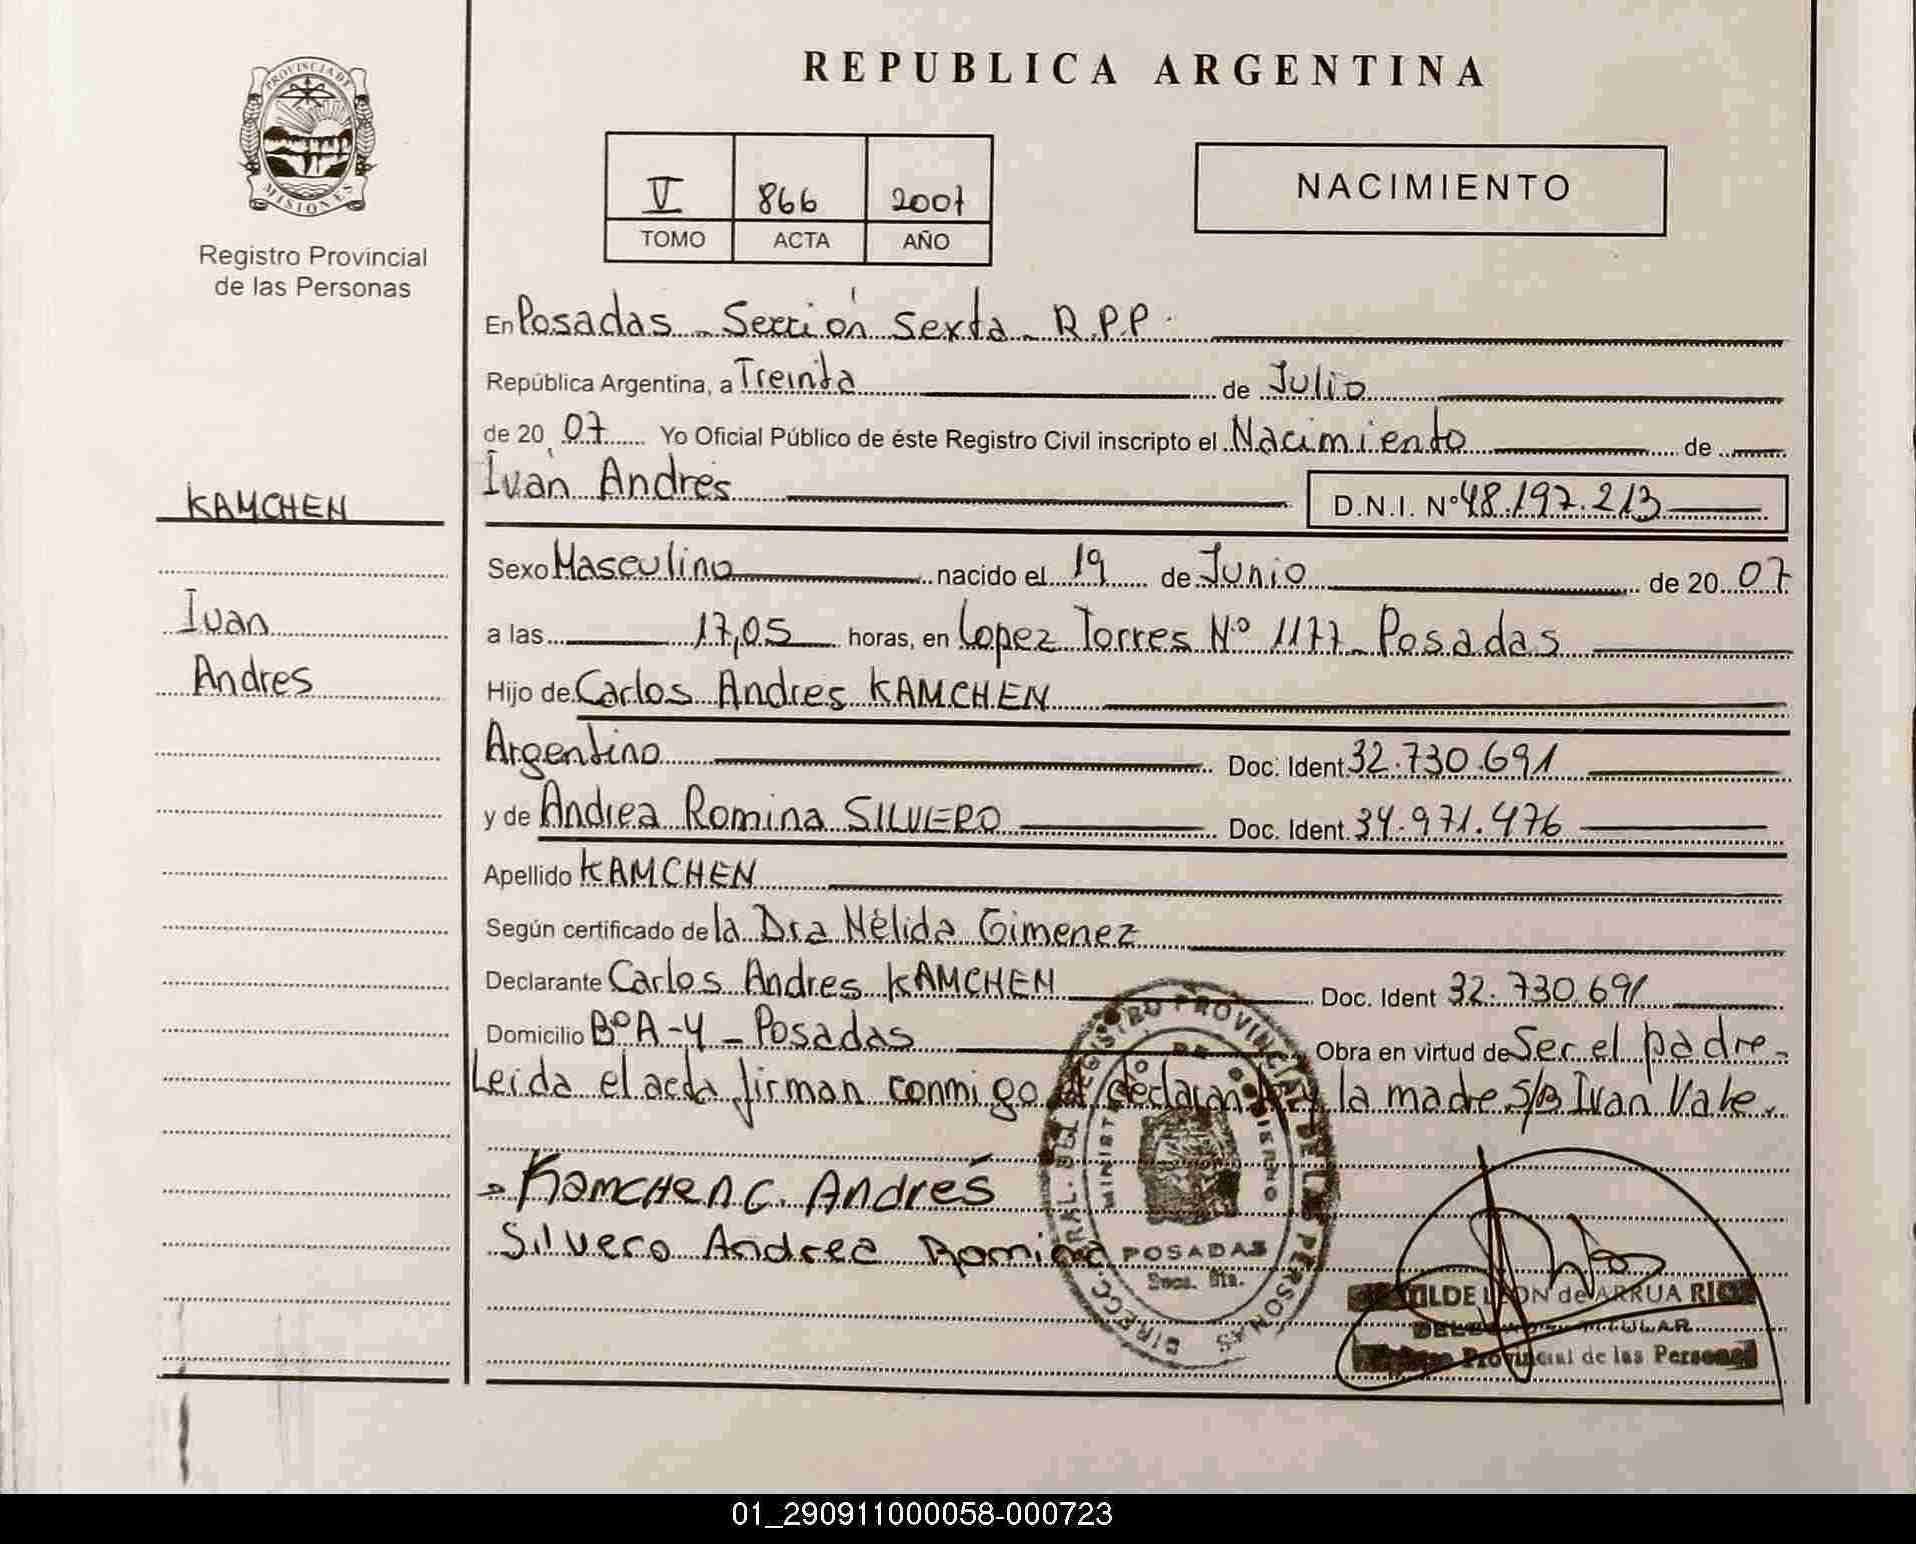 PROVINCIA DE
MISIONES
Registro Provincial
de las Personas
REPUBLICA ARGENTINA
V 866 2007
TOMO ACTA AÑO
NACIMIENTO
En Posadas - Sección Sexta - R.P.P.
República Argentina, a Treinta de Julio
de 20 07 Yo Oficial Público de éste Registro Civil inscripto el Nacimiento de
Ivan Andres D.N.I. Nº 48.197.213
KAMCHEN
Ivan
Andres
Sexo Masculino nacido el 19 de Junio de 20 07
a las 17,05 horas, en Lopez Torres Nº 1177 - Posadas
Hijo de Carlos Andres KAMCHEN
Argentino Doc. Ident 32.730.691
y de Andrea Romina SILVERO Doc. Ident. 34.971.476
Apellido KAMCHEN
Según certificado de la Dra Nélida Gimenez
Declarante Carlos Andres KAMCHEN Doc. Ident 32.730.691
Domicilio Bº A-4 - Posadas Obra en virtud de Ser el padre -
Leida el acta firman conmigo el declarante y la madre s/B Ivan Vale.
Kamchen C. Andrés
Silvero Andrea Romina
DIRECC. GRAL. DEL REGISTRO PROVINCIAL DE LAS PERSONAS
MINISTERIO DE GOBIERNO
POSADAS
Secc. 6ta.
LEON de ARRUA RIOS
TITULAR
Provincial de las Personas
01_290911000058-000723